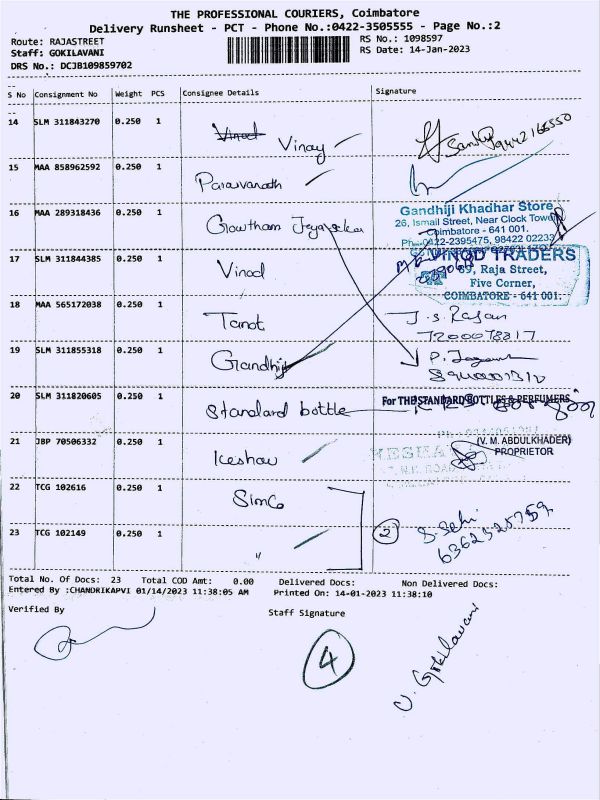 THE PROFESSIONAL COURIERS, Coimbatore
Delivery Runsheet - PCT - Phone No.:0422-3505555 - Page No.:2
Route: RAJASTREET
RS No.: 1098597
Staff: GOKILAVANI
RS Date: 14-Jan-2023
DRS No.: DCJB109859702
S No Consignment No Weight PCS Consignee Details Signature
14 SLM 311843270 0.250 1 Vinay
9442166550
15 MAA 858962592 0.250 1
16 MAA 289318436 0.250 1 Gowtham
Gandhiji Khadhar Store
26, Ismail Street, Near Clock Tower
Coimbatore - 641 001.
Ph: 0422-2395475, 98422 02233
17 SLM 311844385 0.250 1 Vinod
VINOD TRADERS
89, Raja Street,
Five Corner,
COIMBATORE - 641 001.
18 MAA 565172038 0.250 1 Tanot J. S. Rajan
7200078817
19 SLM 311855318 0.250 1 Gandhiji
20 SLM 311820605 0.250 1 Standard bottle For THE STANDARD BOTTLES & PERFUMERS
21 JBP 70506332 0.250 1 Keshav
(V. M. ABDULKHADER)
PROPRIETOR
22 TCG 102616 0.250 1 Simco
2
23 TCG 102149 0.250 1 "
Total No. Of Docs: 23 Total COD Amt: 0.00 Delivered Docs: Non Delivered Docs:
Entered By :CHANDRIKAPVI 01/14/2023 11:38:05 AM Printed On: 14-01-2023 11:38:10
Verified By Staff Signature
4
V. Gokilavani